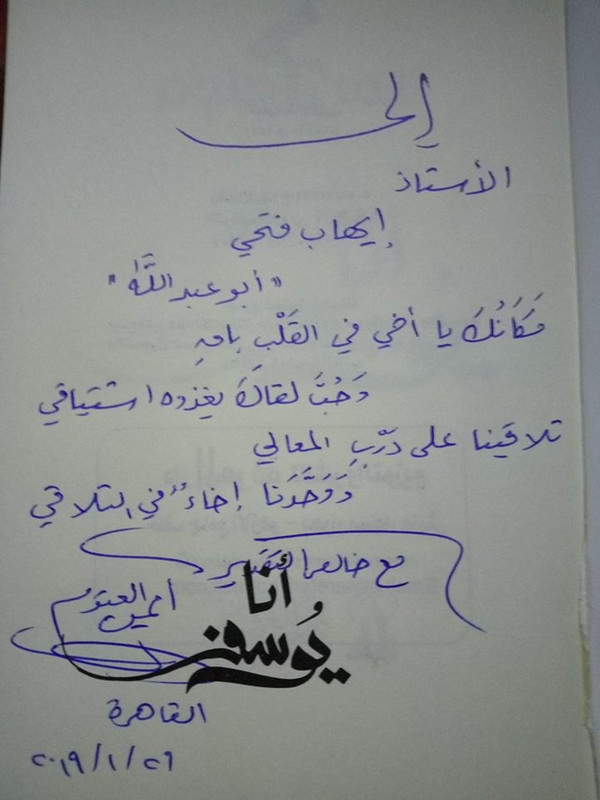 إلى
الأستاذ
إيهاب فتحي
"أبو عبد اللَّه"
مَكَانُكَ يا أخي في القَلْبِ باقٍ
وَحُبُّ لقاكَ يغذوه اشتياقي
تلاقينا على دَرْبِ المعالي
وَوَحَّدَنا إخاءٌ في التلاقي
مع خالص التقدير
أنا
يُوسف
أيمن العتوم
القاهرة
٢٠١٩/١/٢٦